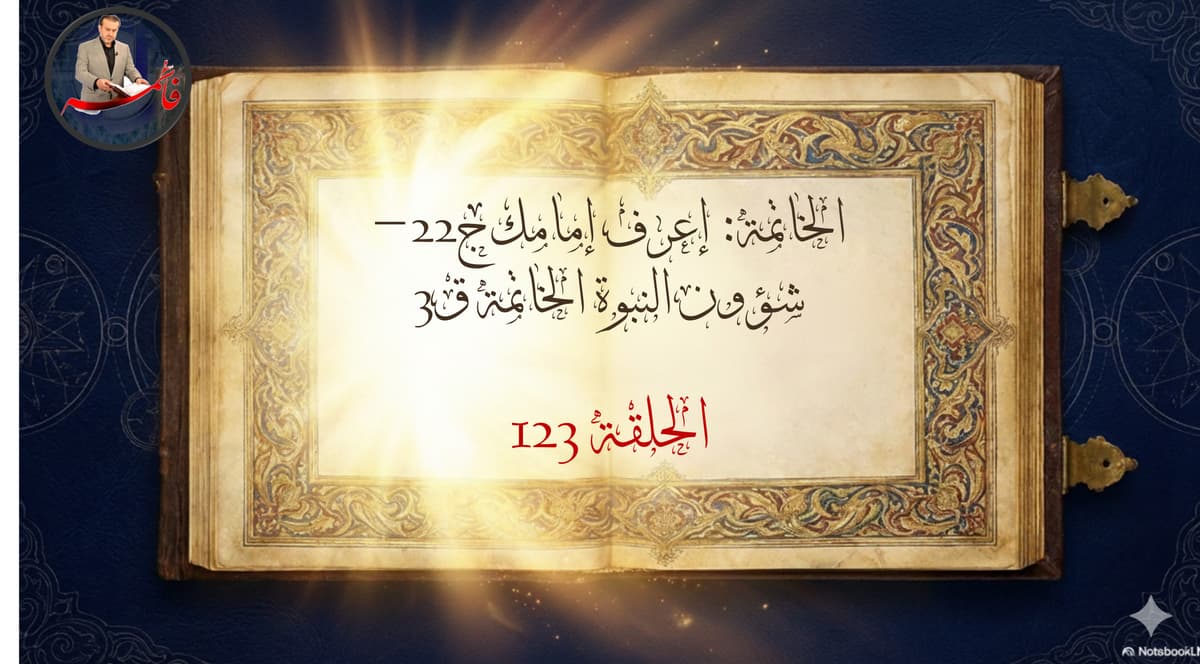 فاطمه
الخاتمة: إعرف إمامك ج22 –
شؤون النبوة الخاتمة ق3
الحلقة 123
NotsbookLM